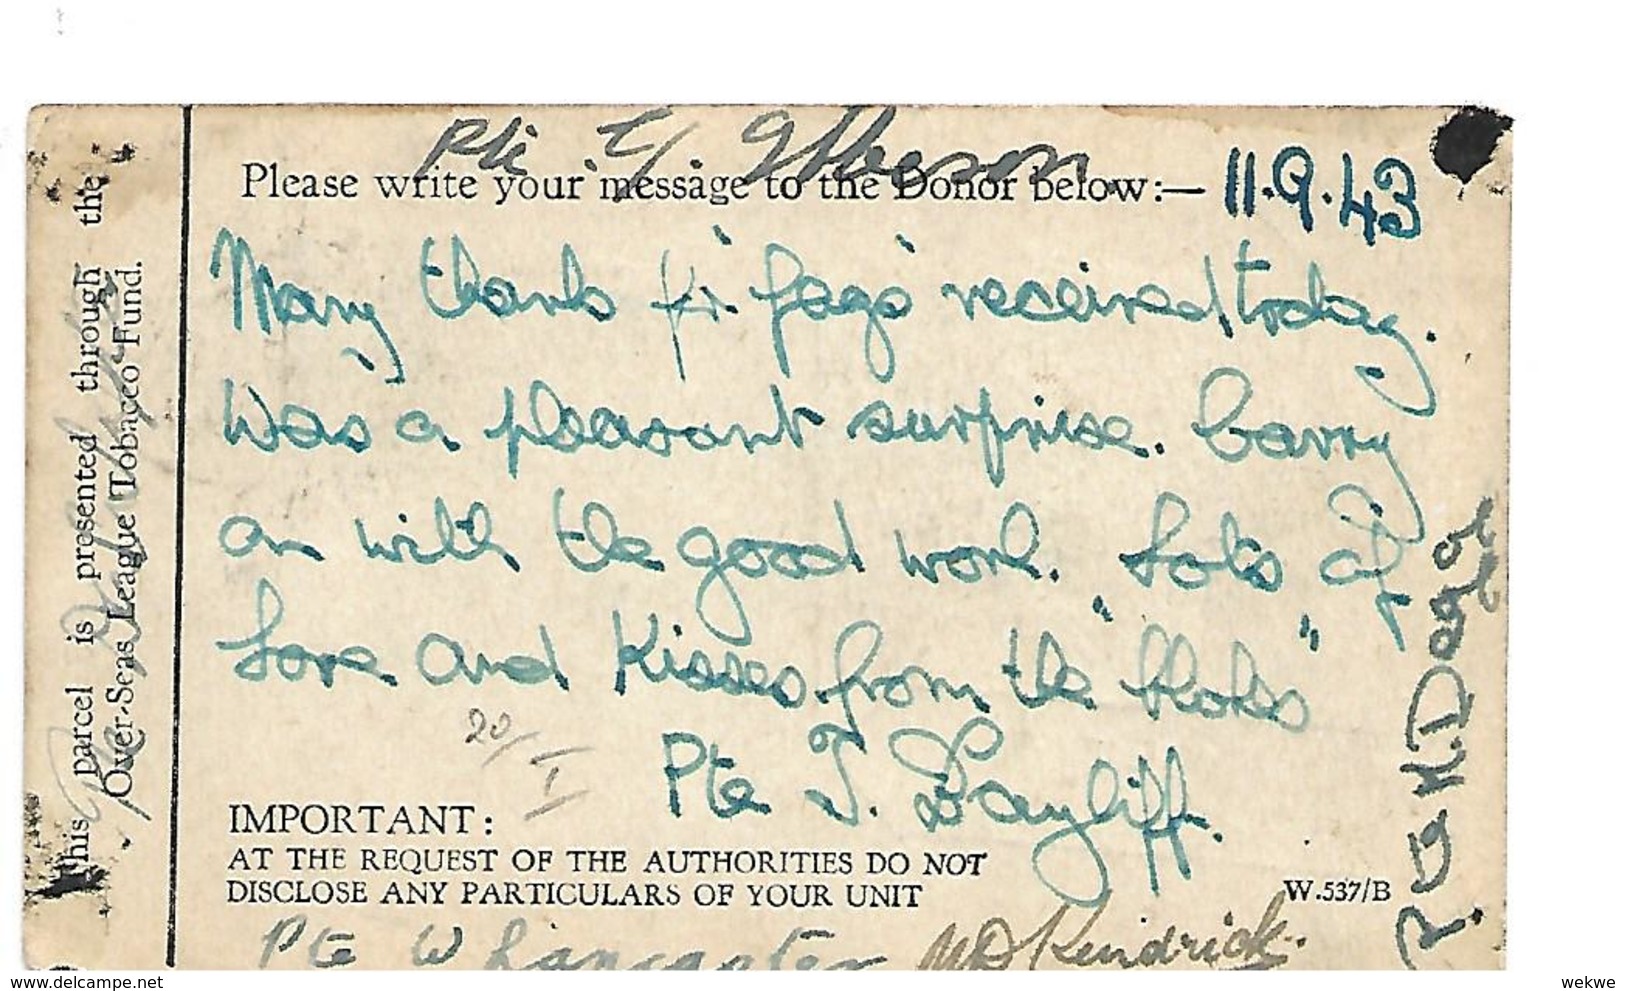 Pte.
Please write your message to the Donor below:— 11.9.43
Many thanks for "fags" received today.
Was a pleasant surprise. Carry
on with the good work. Lots of
Love and Kisses from the "bloks"
Pte J. Bayliff.
20/I
IMPORTANT:
AT THE REQUEST OF THE AUTHORITIES DO NOT
DISCLOSE ANY PARTICULARS OF YOUR UNIT
W.537/B
Pte W Lancaster
MD Kendrick.
This parcel is presented through the
Over-Seas League Tobacco Fund.
www.delcampe.net
wekwe